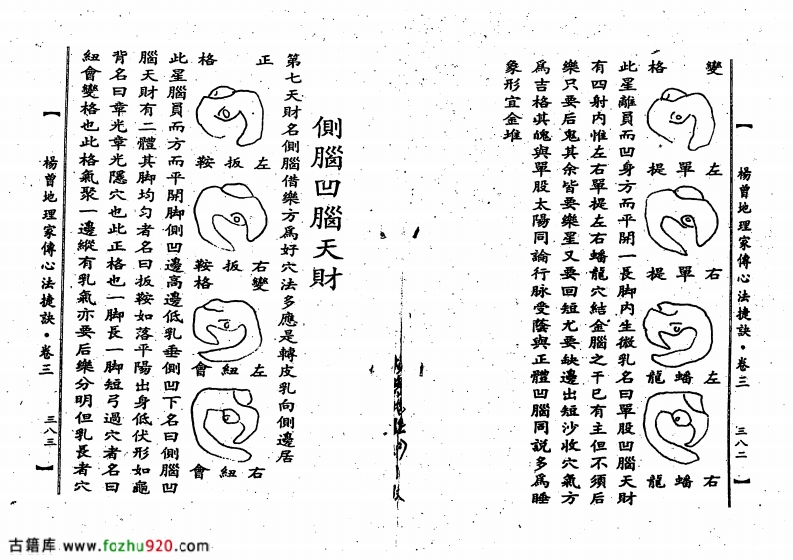 【 楊曾地理家傳心法捷訣·卷三 三八二 】
變格
左單提
右單提
左蟠龍
右蟠龍
此星離員而凹身方而平開一長脚內生微乳名曰單股凹腦天財
有四射內惟左右單提左右蟠龍穴結金腦之干已有主但不須后
樂只要后鬼其余皆要樂星又要回短尤要缺邊出短沙收穴氣方
為吉格其醜與單股太陽同論行脉受蔭與正體凹腦同説多為睡
象形宜金堆
側腦凹腦天財
第七天財名側腦借樂方為好穴法多應是轉皮乳向側邊居
正格
左扳鞍
右扳鞍
變格
左紐會
右紐會
此星腦員而方而平開脚側凹邊高邊低乳垂側凹下名曰側腦凹
腦天財有二體其脚均匀者名曰扳鞍如落平陽出身低伏形如龜
背名曰章光章光隱穴也此正格也一脚長一脚短弓過穴者名曰
紐會變格也此格氣聚一邊縱有乳氣亦要后樂分明但乳長者穴
【 楊曾地理家傳心法捷訣·卷三 三八三 】
古籍库 www.fozhu920.com